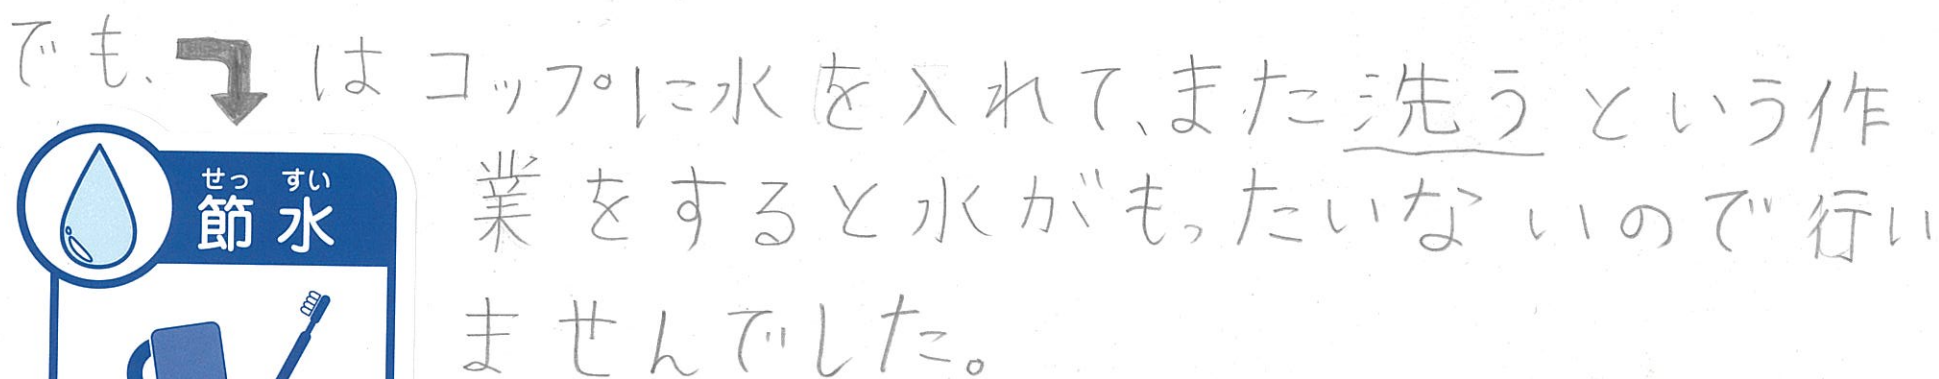 でも、↴はコップに水を入れて、また洗うという作
業をすると水がもったいないので行い
ませんでした。
せっ すい
節水